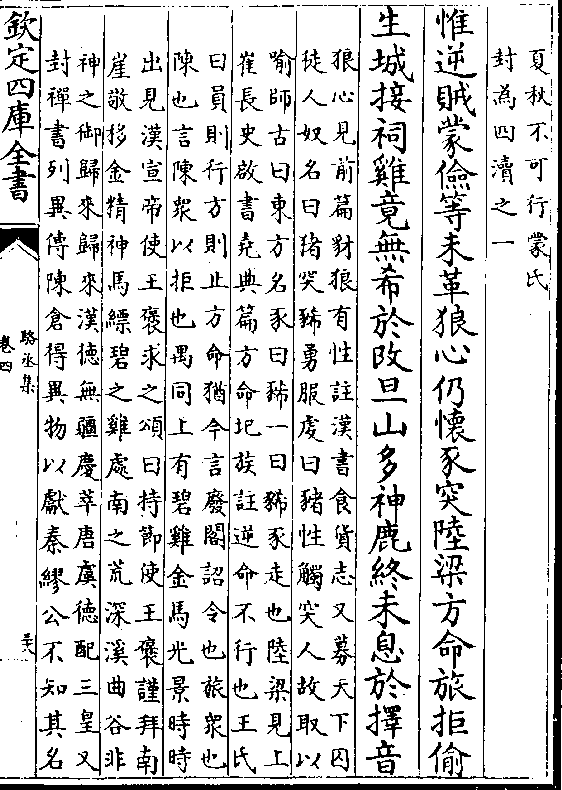 夏秋不可行蒙氏
封為四瀆之一
惟逆賊蒙儉等未革狼心仍懷豕突陸梁方命旅拒偷
生城接祠雞竟無希於改旦山多神鹿終未息於擇音
狼心見前篇豺狼有性註漢書食貨志又募天下囚
徒人奴名曰豬突豨勇服虔曰豬性觸突人故取以
喻師古曰東方名豕曰豨一曰豨豕走也陸梁見上
崔長史啟書堯典篇方命圮族註逆命不行也王氏
曰員則行方則止方命猶今言廢閣詔令也旅衆也
陳也言陳衆以拒也禺同上有碧雞金馬光景時時
出見漢宣帝使王褒求之頌曰持節使王褒謹拜南
崖敬移金精神馬縹碧之雞處南之荒深溪曲谷非
神之御歸來歸來漢德無疆慶莘唐虞德配三皇又
封禪書列異傳陳倉得異物以獻秦繆公不知其名
欽定四庫全書
駱丞集
卷四